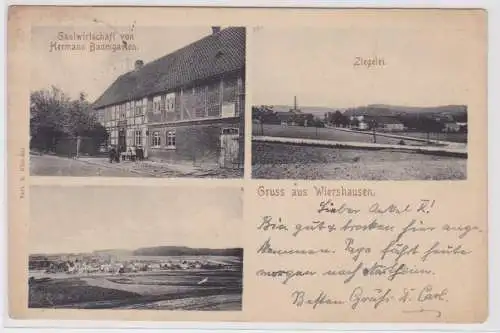 Gastwirtschaft von
Hermann Baumgarten.
Ziegelei.
Gruss aus Wiershausen.
Lieber Onkel K!
Bin gut & trocken hier ange-
kommen. Papa fährt heute
morgen nach Northeim.
Besten Gruß D. Carl.
Verl. R.